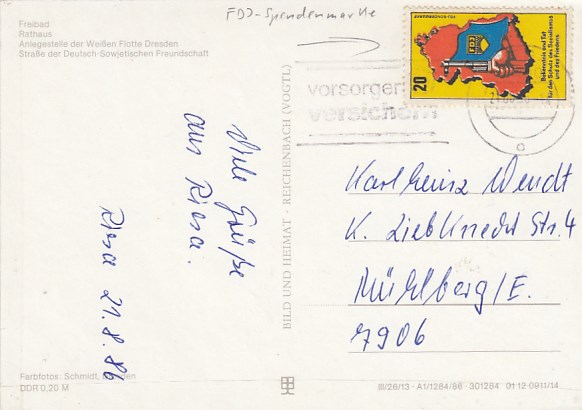 Freibad
Rathaus
Anlegestelle der Weißen Flotte Dresden
Straße der Deutsch-Sowjetischen Freundschaft
FDJ-Spendenmarke
Viele Grüße
aus Riesa.
Riesa 21.8.86
Farbfotos: Schmidt,
DDR 0,20 M
BILD UND HEIMAT · REICHENBACH (VOGTL
20
FDJ
Bekenntnis und Tat
für den Schutz des Sozialismus
und des Friedens
vorsorgen
versichern
Karlheinz Wendt
K. Liebknecht Str. 4
Mühlberg/E.
7906
III/26/13 · A1/1284/86 · 301284 01 12 0911/14